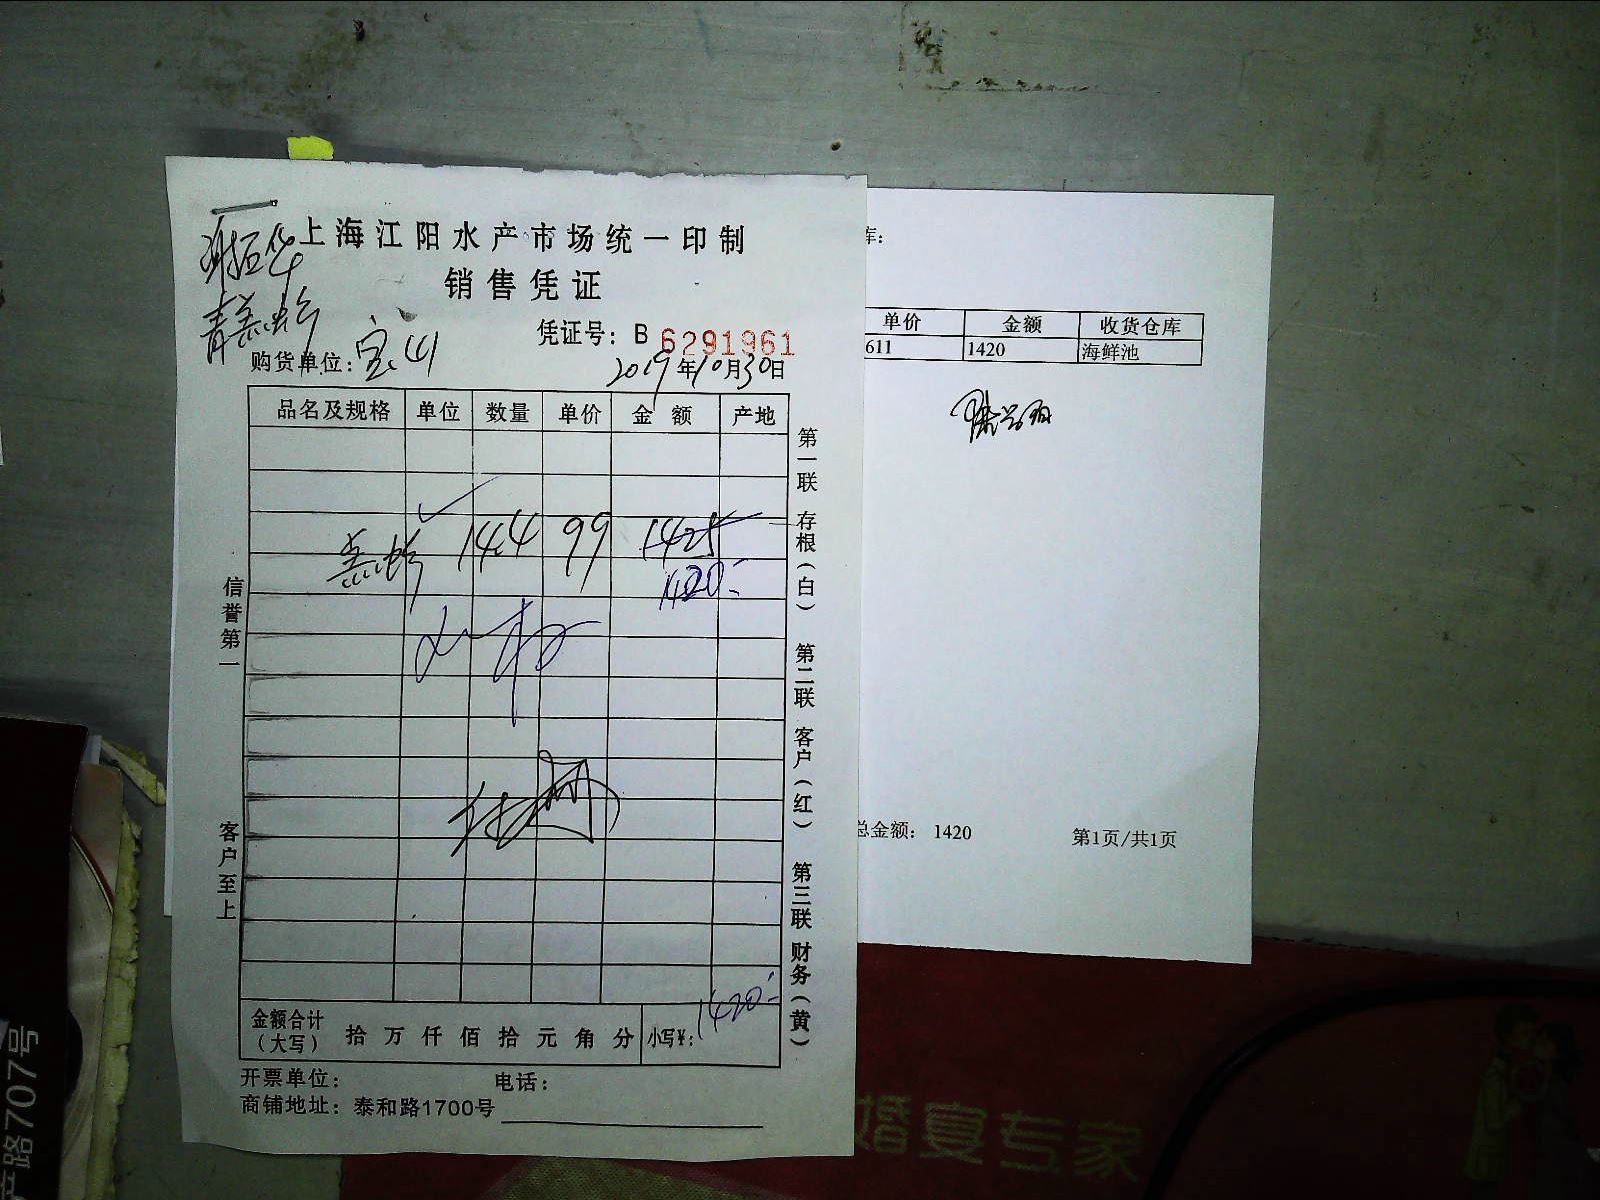 上海江阳水产市场统一印制
销售凭证
凭证号：B 6291961
购货单位：宝山
2019年10月30日
品名及规格 单位 数量 单价 金 额 产地
14.4 99 1425
1420.-
金额合计（大写） 拾 万 仟 佰 拾 元 角 分 小写¥：1420.-
开票单位： 电话：
商铺地址：泰和路1700号
信誉第一
客户至上
第一联 存根（白） 第二联 客户（红） 第三联 财务（黄）
库：
单价 金额 收货仓库
611 1420 海鲜池
总金额： 1420 第1页/共1页
婚宴专家
产路707号